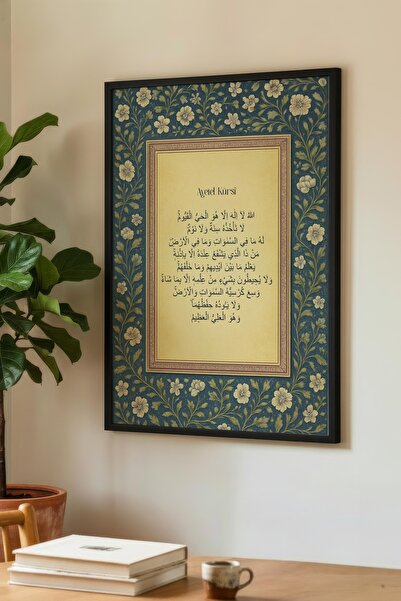 Ayetel Kürsi
اَللّٰهُ لَا اِلٰهَ اِلَّا هُوَ الْحَيُّ الْقَيُّومُ
لَا تَأْخُذُهُ سِنَةٌ وَلَا نَوْمٌ
لَهُ مَا فِي السَّمٰوَاتِ وَمَا فِي الْاَرْضِ
مَنْ ذَا الَّذِي يَشْفَعُ عِنْدَهُ اِلَّا بِاِذْنِهِ
يَعْلَمُ مَا بَيْنَ اَيْدِيهِمْ وَمَا خَلْفَهُمْ
وَلَا يُحِيطُونَ بِشَيْءٍ مِنْ عِلْمِهِ اِلَّا بِمَا شَاءَ
وَسِعَ كُرْسِيُّهُ السَّمٰوَاتِ وَالْاَرْضَ
وَلَا يَئُودُهُ حِفْظُهُمَا
وَهُوَ الْعَلِيُّ الْعَظِيمُ